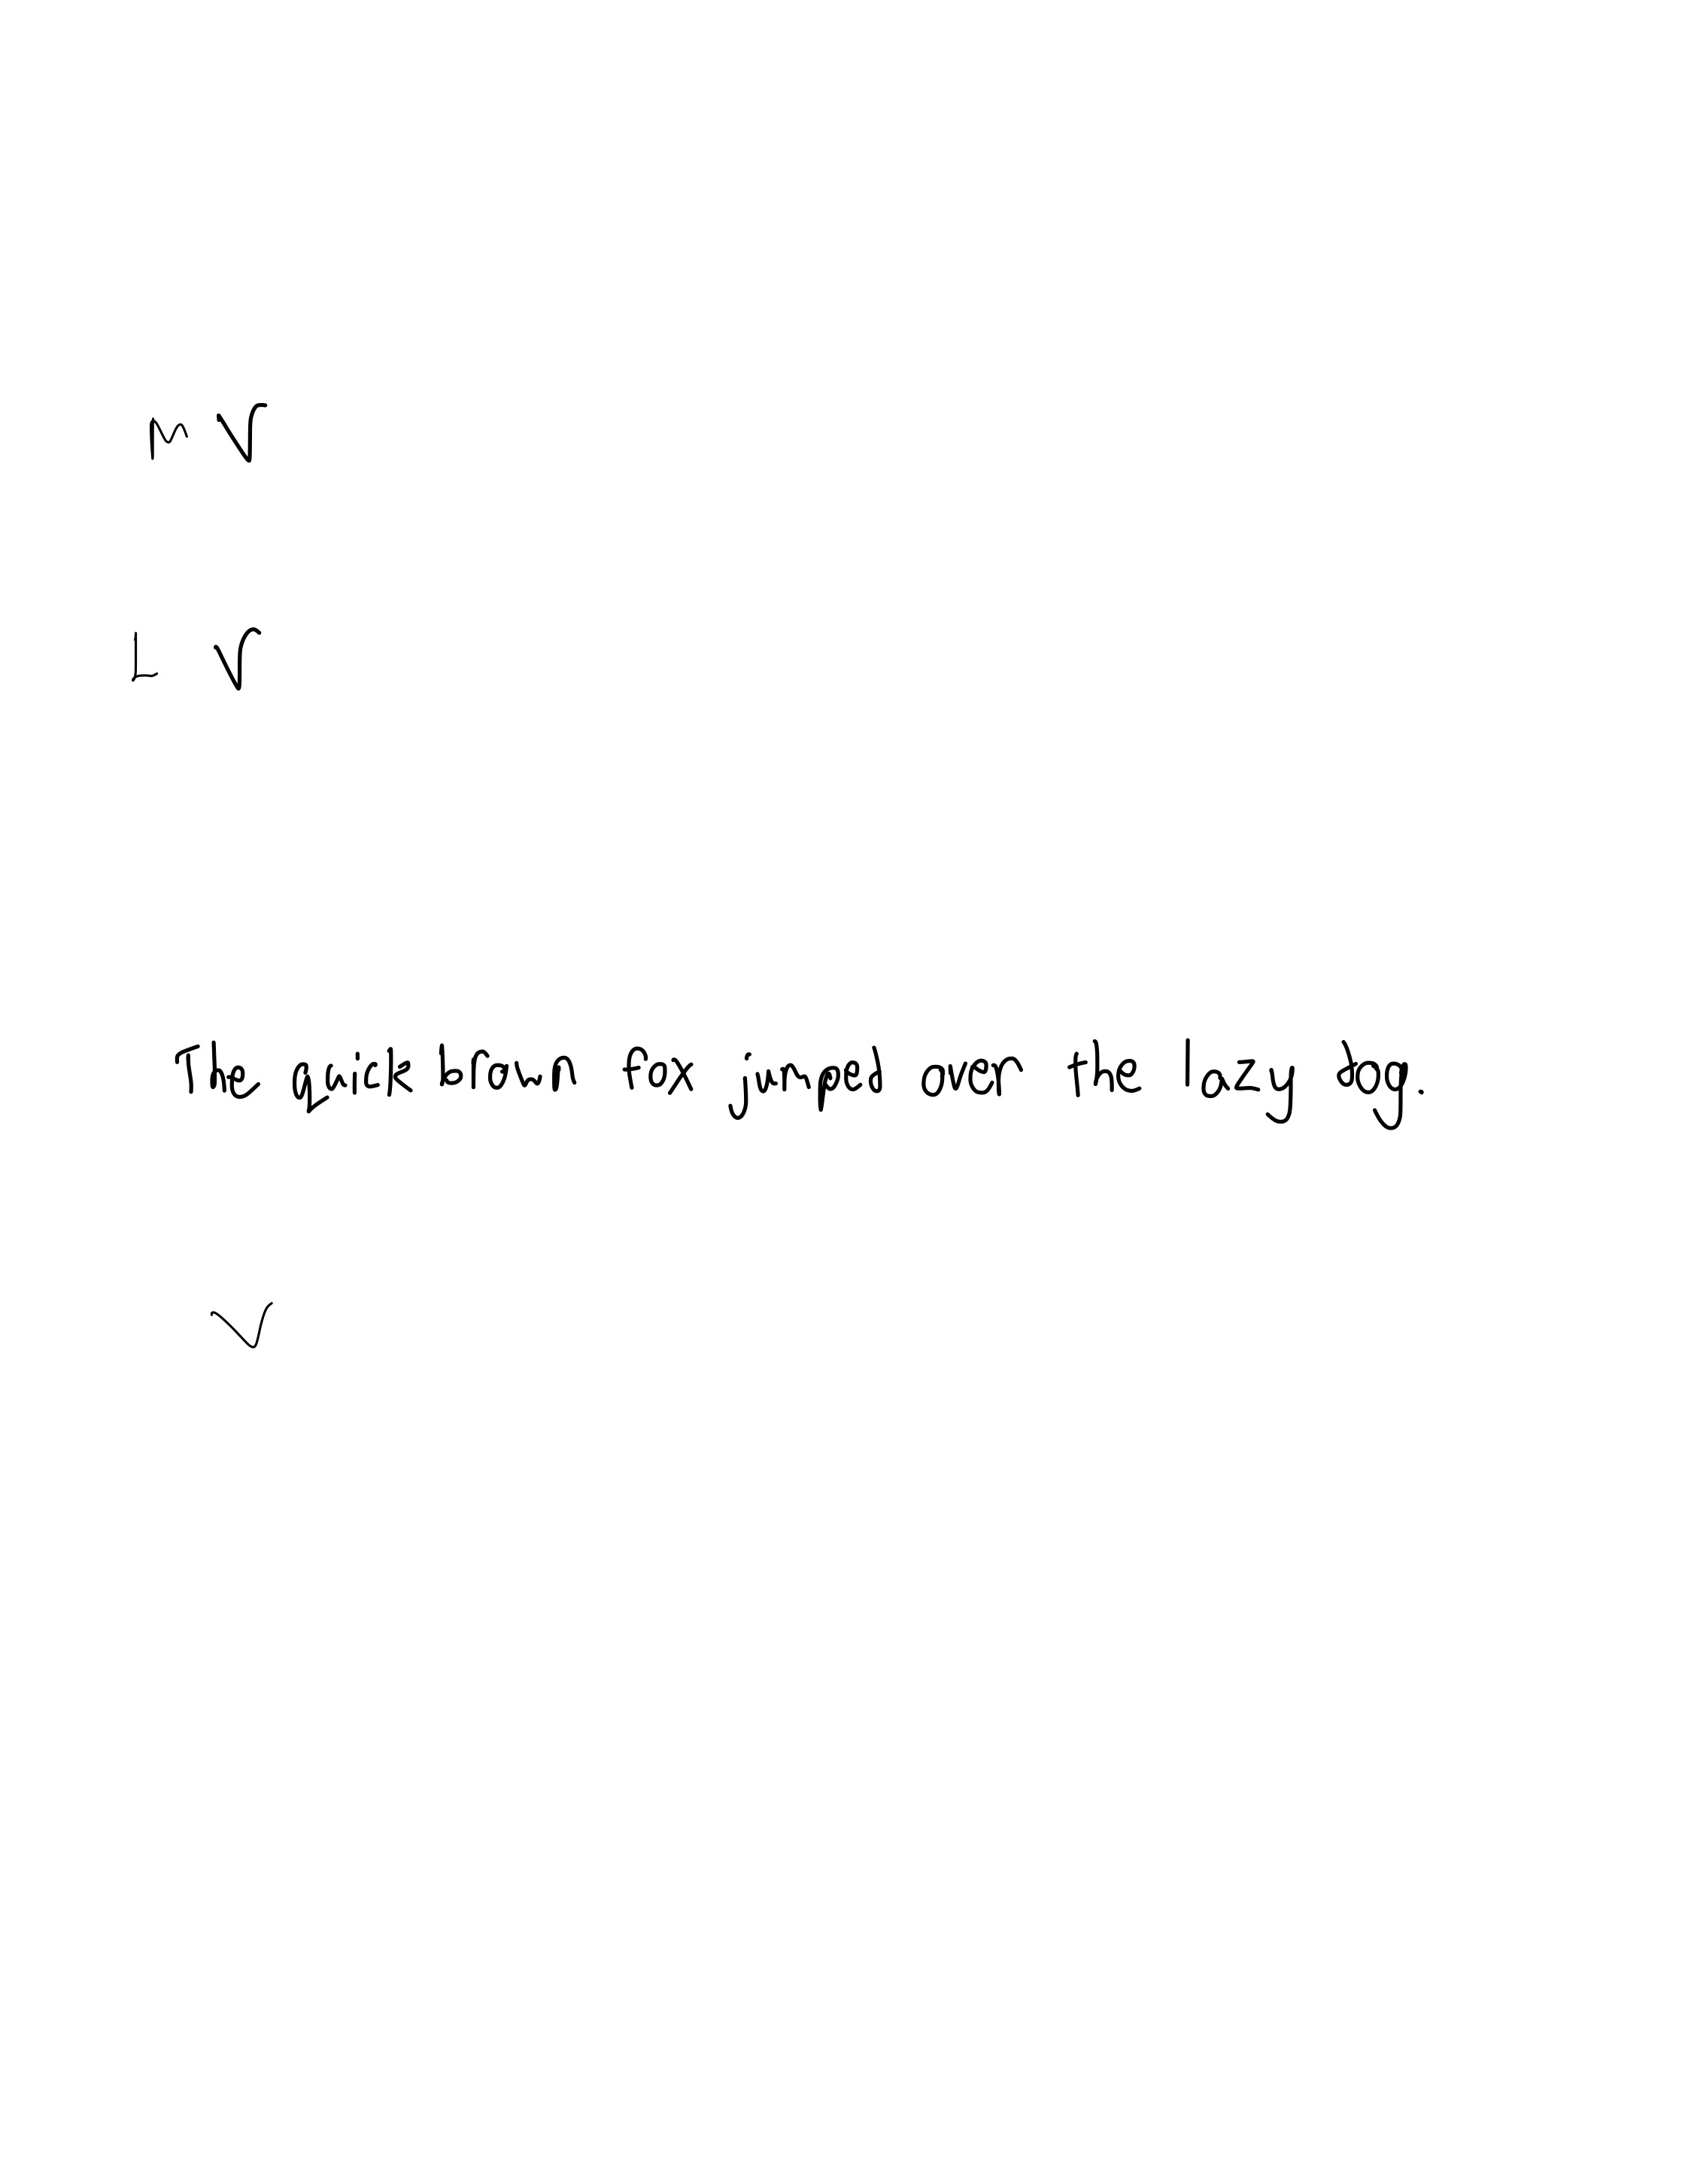 M V
L V
The quick brown fox jumped over the lazy dog.
V